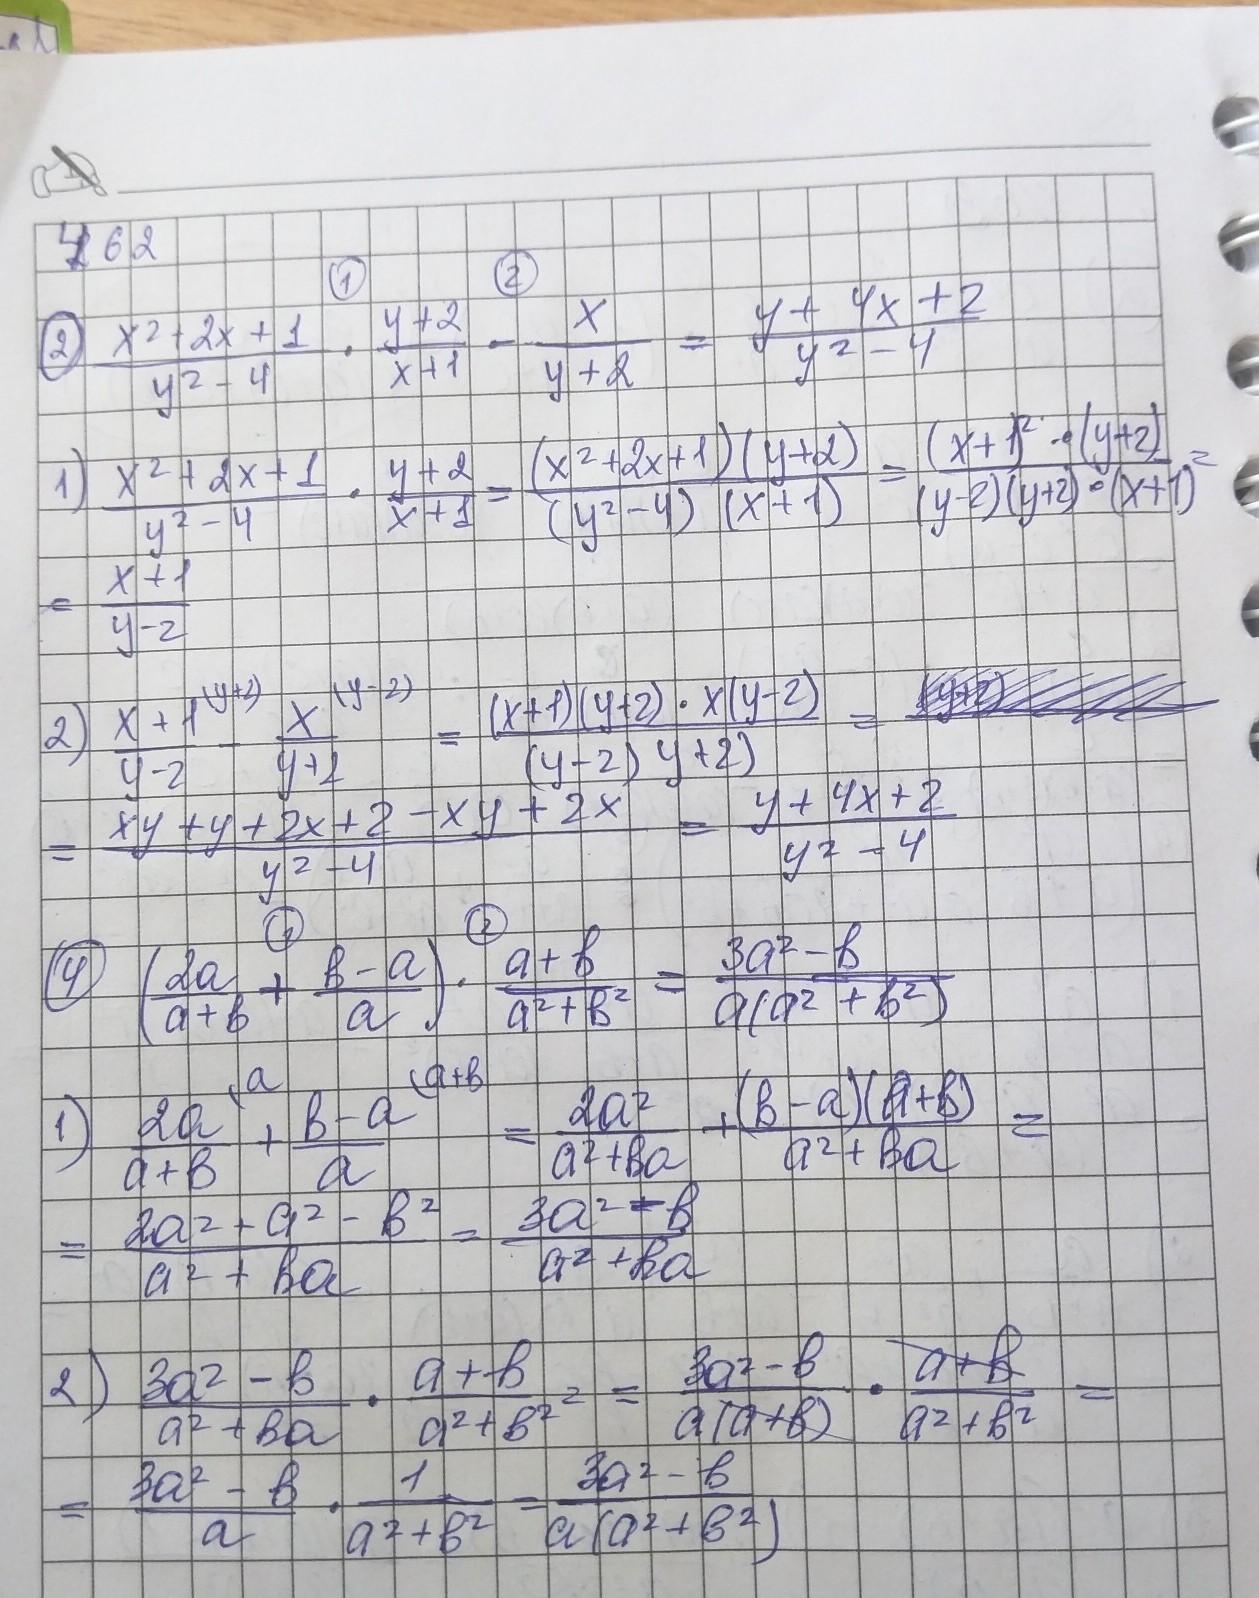 462
① ②
② (x²+2x+1)/(y²-4) · (y+2)/(x+1) - x/(y+2) = (y+4x+2)/(y²-4)
1) (x²+2x+1)/(y²-4) · (y+2)/(x+1) = ((x²+2x+1)(y+2))/((y²-4)(x+1)) = ((x+1)²·(y+2))/((y-2)(y+2)·(x+1)) =
= (x+1)/(y-2)
2) (x+1)/(y-2) (y+2) - x/(y+2) (y-2) = ((x+1)(y+2)·x(y-2))/((y-2)y+2)) =
= (xy+y+2x+2-xy+2x)/(y²-4) = (y+4x+2)/(y²-4)
① ②
④ (2a/(a+b) + (b-a)/a) · (a+b)/(a²+b²) = (3a²-b)/(a(a²+b²))
1) 2a/(a+b) (a + (b-a)/a (a+b = 2a²/(a²+ba) + ((b-a)(a+b))/(a²+ba) =
= (2a²+a²-b²)/(a²+ba) = (3a²-b)/(a²+ba)
2) (3a²-b)/(a²+ba) · (a+b)/(a²+b²) = = (3a²-b)/(a(a+b)) · (a+b)/(a²+b²) =
= (3a²-b)/a · 1/(a²+b²) = (3a²-b)/(a(a²+b²))